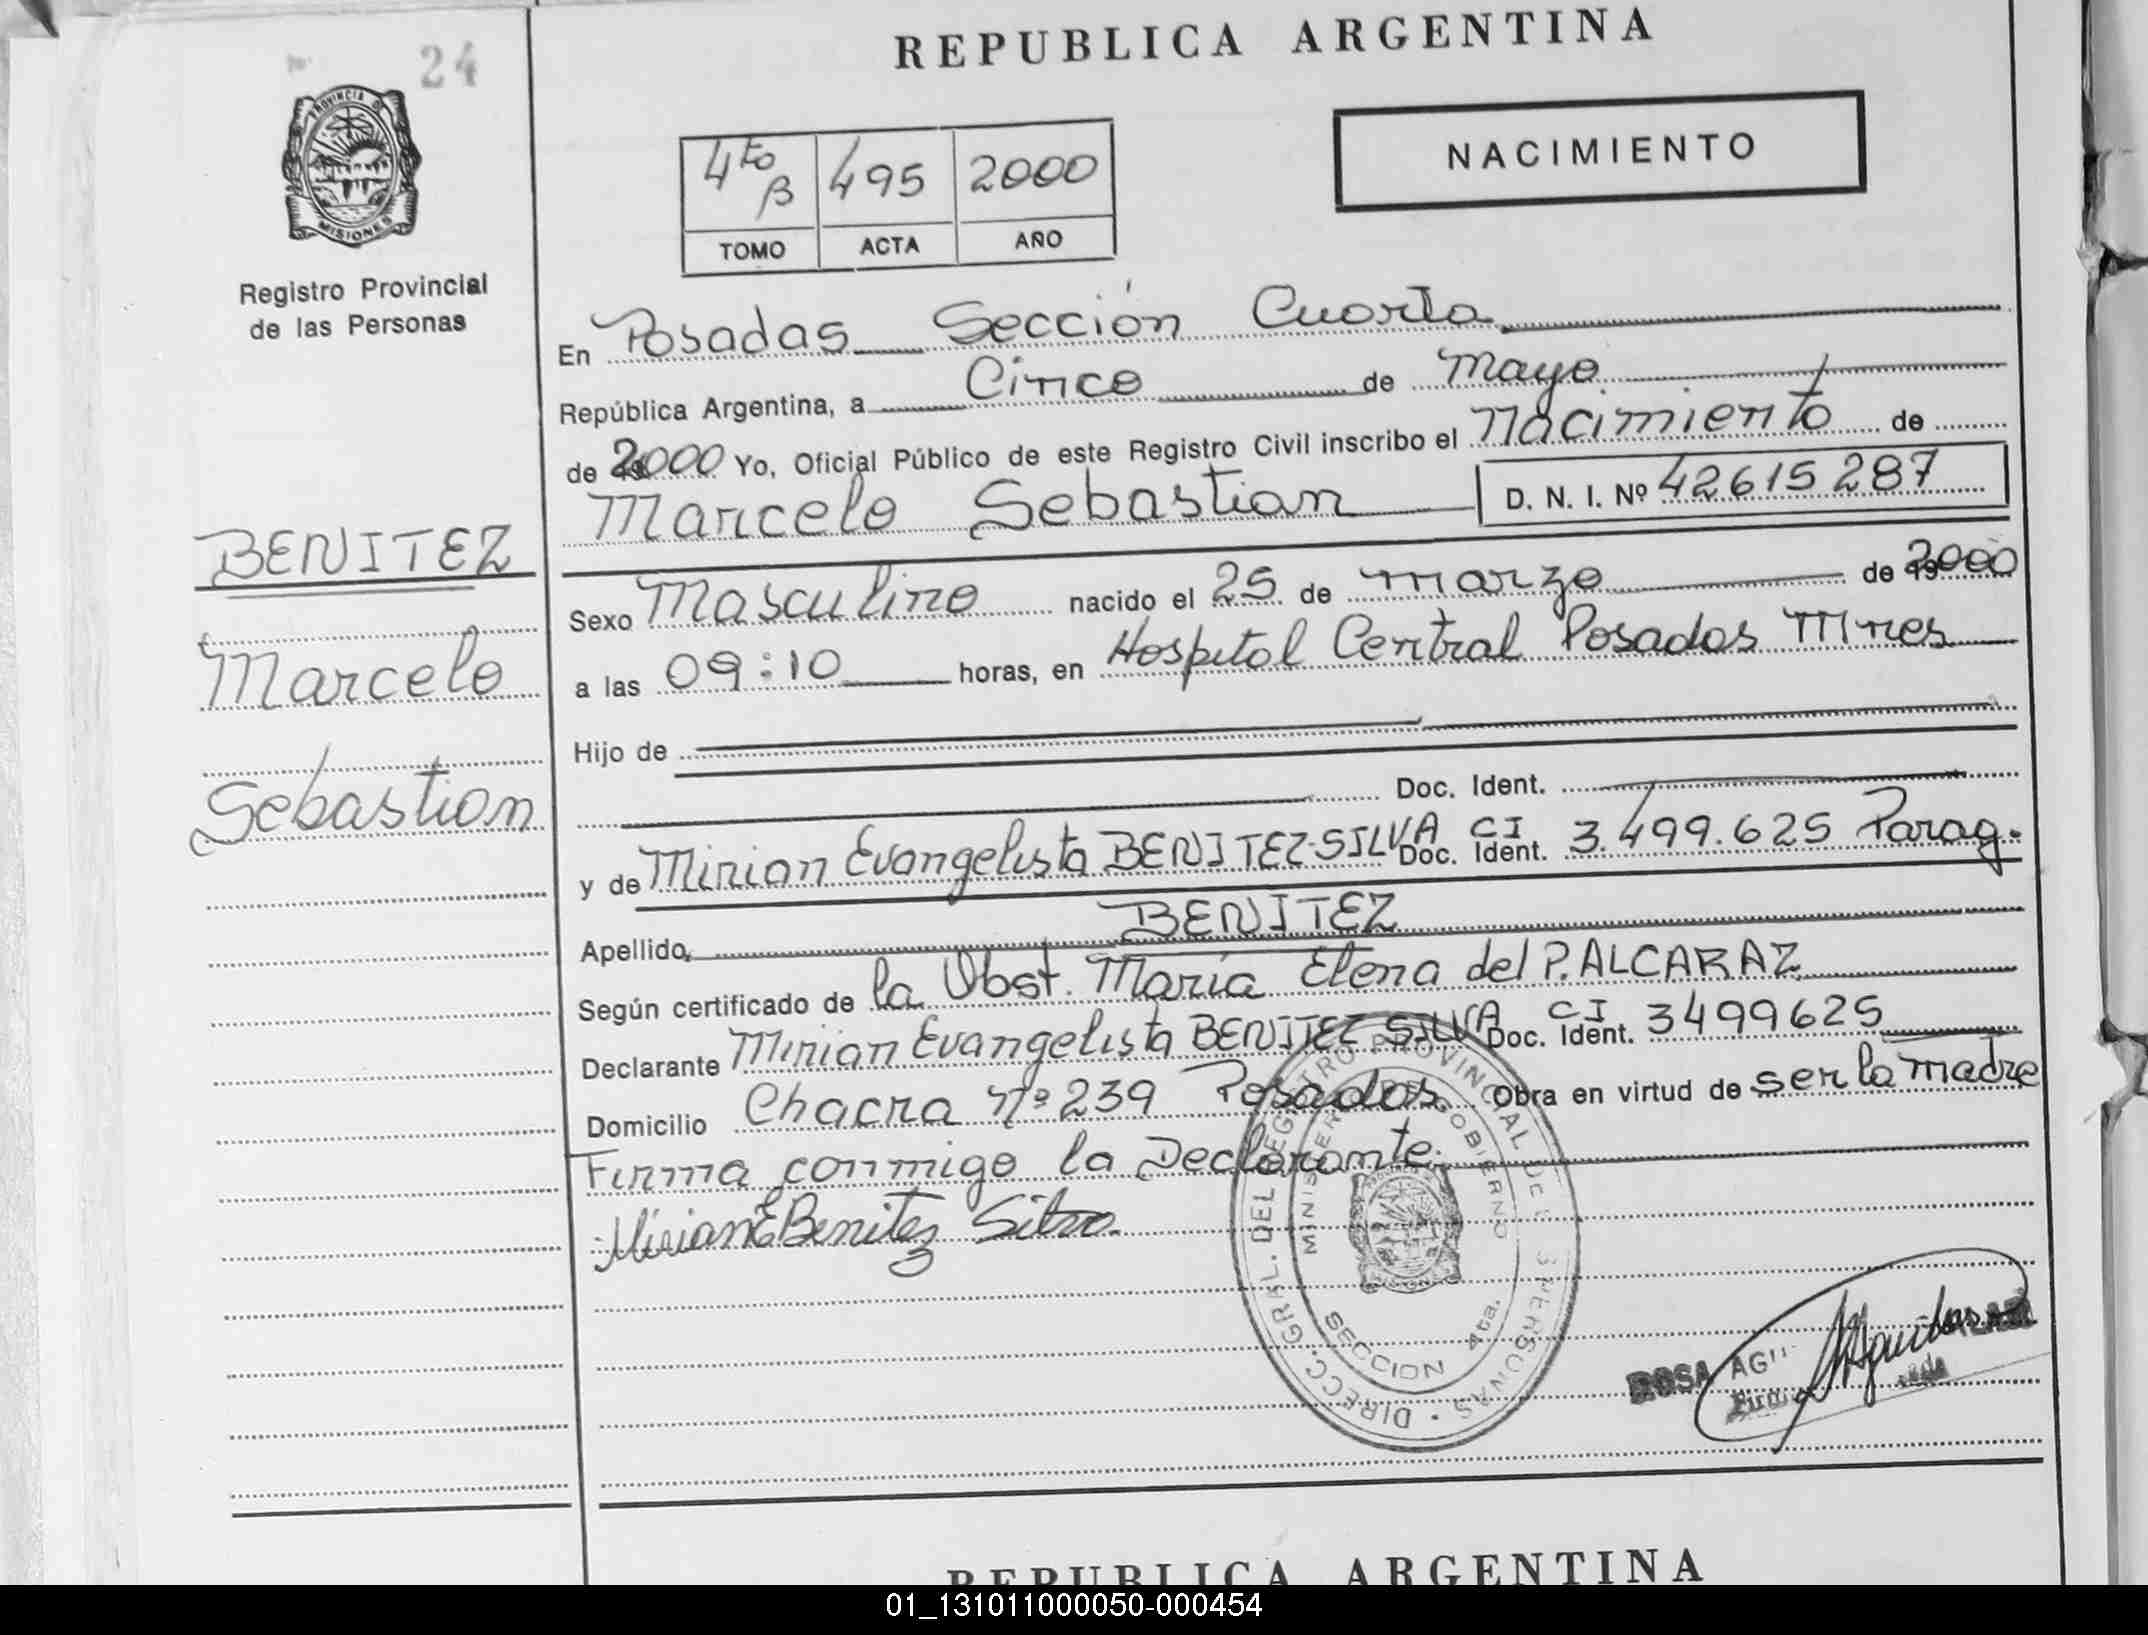 24
PROVINCIA DE
MISIONES
Registro Provincial
de las Personas
BENITEZ
Marcelo
Sebastian
REPUBLICA ARGENTINA
4to B 495 2000
TOMO ACTA AÑO
NACIMIENTO
En Posadas Sección Cuarta
República Argentina, a Cinco de Mayo
de 2000 Yo, Oficial Público de este Registro Civil inscribo el Nacimiento de
Marcelo Sebastian D. N. I. Nº 42615287
Sexo Masculino nacido el 25 de marzo de 2000
a las 09:10 horas, en Hospital Central Posadas Mnes
Hijo de
Doc. Ident.
y de Mirian Evangelista BENITEZ-SILVA CI Doc. Ident. 3.499.625 Parag.
Apellido, BENITEZ
Según certificado de la Obst. María Elena del P. ALCARAZ
Declarante Mirian Evangelista BENITEZ SILVA CI Doc. Ident. 3499625
Domicilio Chacra Nº 239 Posadas. Obra en virtud de ser la madre
Firma conmigo la Declarante.
Mirian E Benitez Silva
DIRECC. GRAL. DEL REGISTRO PROVINCIAL DE PERSONAS
MINISTERIO DE GOBIERNO
SECCION 4ta.
ROSA
REPUBLICA ARGENTINA
01_131011000050-000454